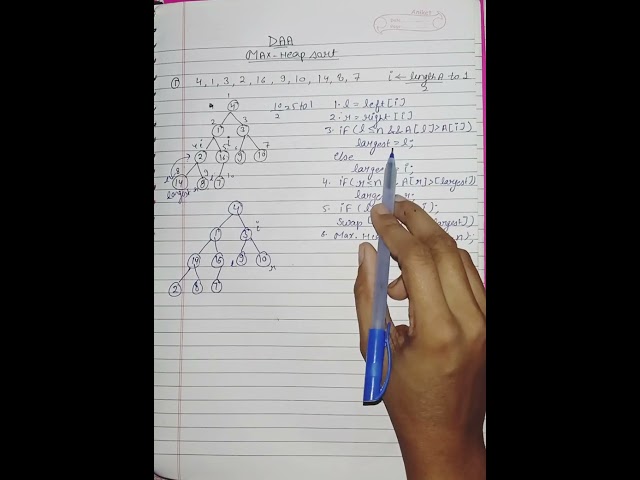 DAA
Max-Heap sort
① 4, 1, 3, 2, 16, 9, 10, 14, 8, 7
i ← length A to 1
2
10 = 5 to 1
2
1. l = left [i]
2. r = right [i]
3. if (l ≤ n && A[l] > A[i])
largest = l;
else
i;
4. if (r ≤ n A[r] > [largest])
5. if
i);
Swap
largest])
6. Max.
n);
1
4
2 3
1 3
4 i 5 6 7
2 16 9 10
8 9 10
14 8 7
largest
4
i
1 3
14 16 9 10
l r
2 8 7